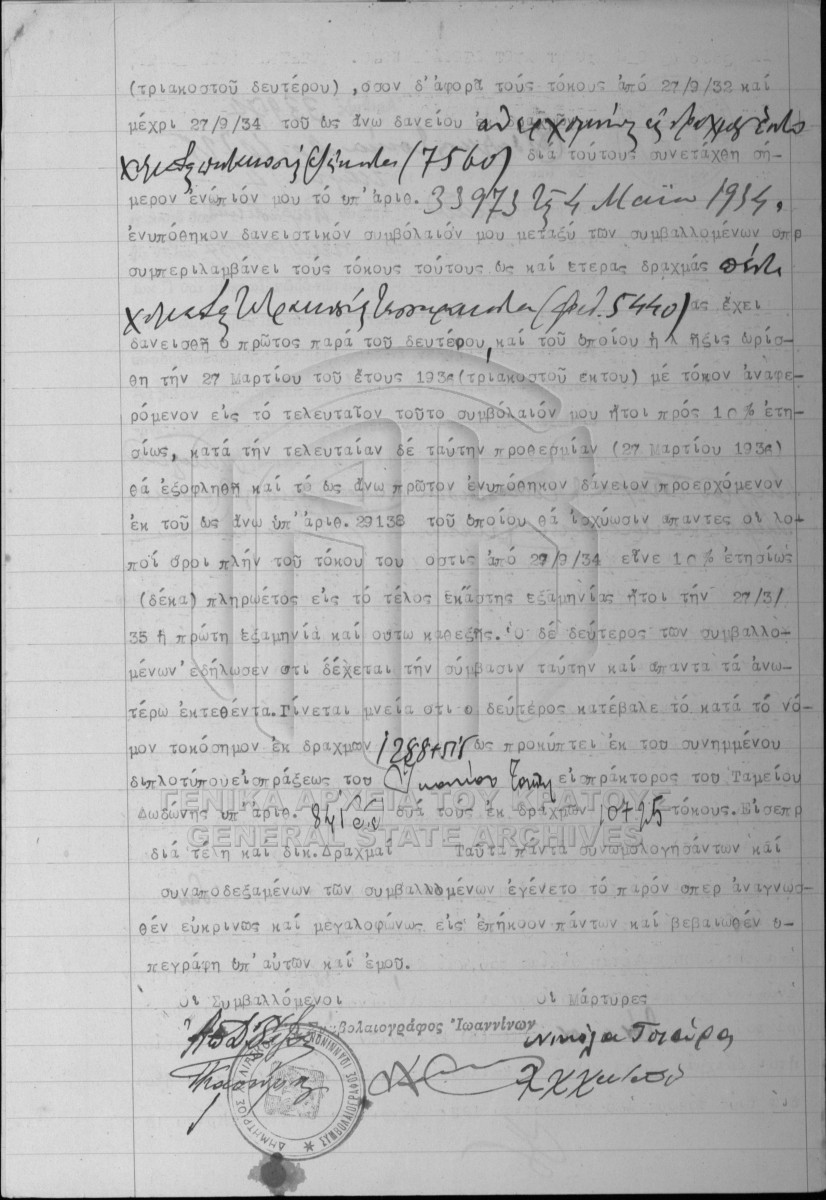 (τριακοστοῦ δευτέρου) ,οσον δ'ἀφορᾶ τούς τόκους ἀπό 27/9/32 καί
μέχρι 27/9/34 τοῦ ὡς ἄνω δανείου ἐκ δραχμῶν ἀνερχομένους εἰς δραχμάς ἑπτά
χιλιάδας πεντακοσίας ἑξήκοντα (7560) διά τούτους συνετάχθη σή-
μερον ἐνώπιόν μου τό ὑπ'ἀριθ. 33973 τῆς 4 Μαΐου 1934,
ἐνυπόθηκον δανειστικόν συμβόλαιόν μου μεταξύ τῶν συμβαλλομένων οπερ
συμπεριλαμβάνει τούς τόκους τούτους ὡς καί ετερας δραχμάς πέντε
χιλιάδας τετρακοσίας τεσσαράκοντα (δρχ. 5440) ας ἔχει
δανεισθῆ ὁ πρῶτος παρά τοῦ δευτέρου, καί τοῦ ὁποίου ἡ λῆξις ὡρίσ-
θη τήν 27 Μαρτίου τοῦ ἔτους 1936(τριακοστοῦ εκτου) μέ τόκον ἀναφε-
ρόμενον εἰς τό τελευταῖον τοῦτο συμβόλαιόν μου ἤτοι πρός 10% ἐτη-
σίως, κατά τήν τελευταίαν δέ ταύτην προθεσμίαν (27 Μαρτίου 1936)
θά ἐξοφληθῆ καί τό ὡς ἄνω πρῶτον ἐνυπόθηκον δάνειον προερχόμενον
ἐκ τοῦ ὡς ἄνω ὑπ'ἀριθ. 29138 τοῦ ὁποίου θά ἰσχύωσιν απαντες οι λο-
ποί οροι πλήν τοῦ τόκου του οστις ἀπό 27/9/34 εἶνε 10% ἐτησίως
(δέκα) πληρωέτος εἰς τό τέλος ἑκάστης εξαμηνίας ἤτοι τήν 27/3/
35 ἡ πρώτη ἑξαμηνία καί ουτω καθεξῆς. Ὁ δέ δεύτερος τῶν συμβαλλο-
μένων ἐδήλωσεν οτι δέχεται τήν σύμβασιν ταύτην καί απαντα τά ἀνω-
τέρω ἐκτεθέντα.Γίνεται μνεία οτι ο δεύτερος κατέβαλε τό κατά τό νό-
μον τοκόσημον ἐκ δραχμῶν 1288 ὡς προκύπτει ἐκ του συνημμένου
διπλοτύπου εἰσπράξεως του εἰσπράκτορος του Ταμείου
Δωδώνης ὑπ'ἀριθ. διά τούς ἐκ δραχμῶν 10725 τόκους. Εἰσεπρ
διά τέλη καί δικ.Δραχμαί Ταῦτα πάντα συνωμολογησάντων καί
συναποδεξαμένων τῶν συμβαλλομένων ἐγένετο τό παρόν οπερ ἀναγνωσ-
θέν εὐκρινῶς καί μεγαλοφώνως εἰς ἐπήκοον πάντων καί βεβαιωθέν υ-
πεγράφη ὑπ'αὐτῶν καί ἐμοῦ.
οι Συμβαλλόμενοι οι Μάρτυρες
Συμβολαιογράφος Ἰωαννίνων
Νικόλα Τσιάρας
ΓΕΝΙΚΑ ΑΡΧΕΙΑ ΤΟΥ ΚΡΑΤΟΥΣ
GENERAL STATE ARCHIVES